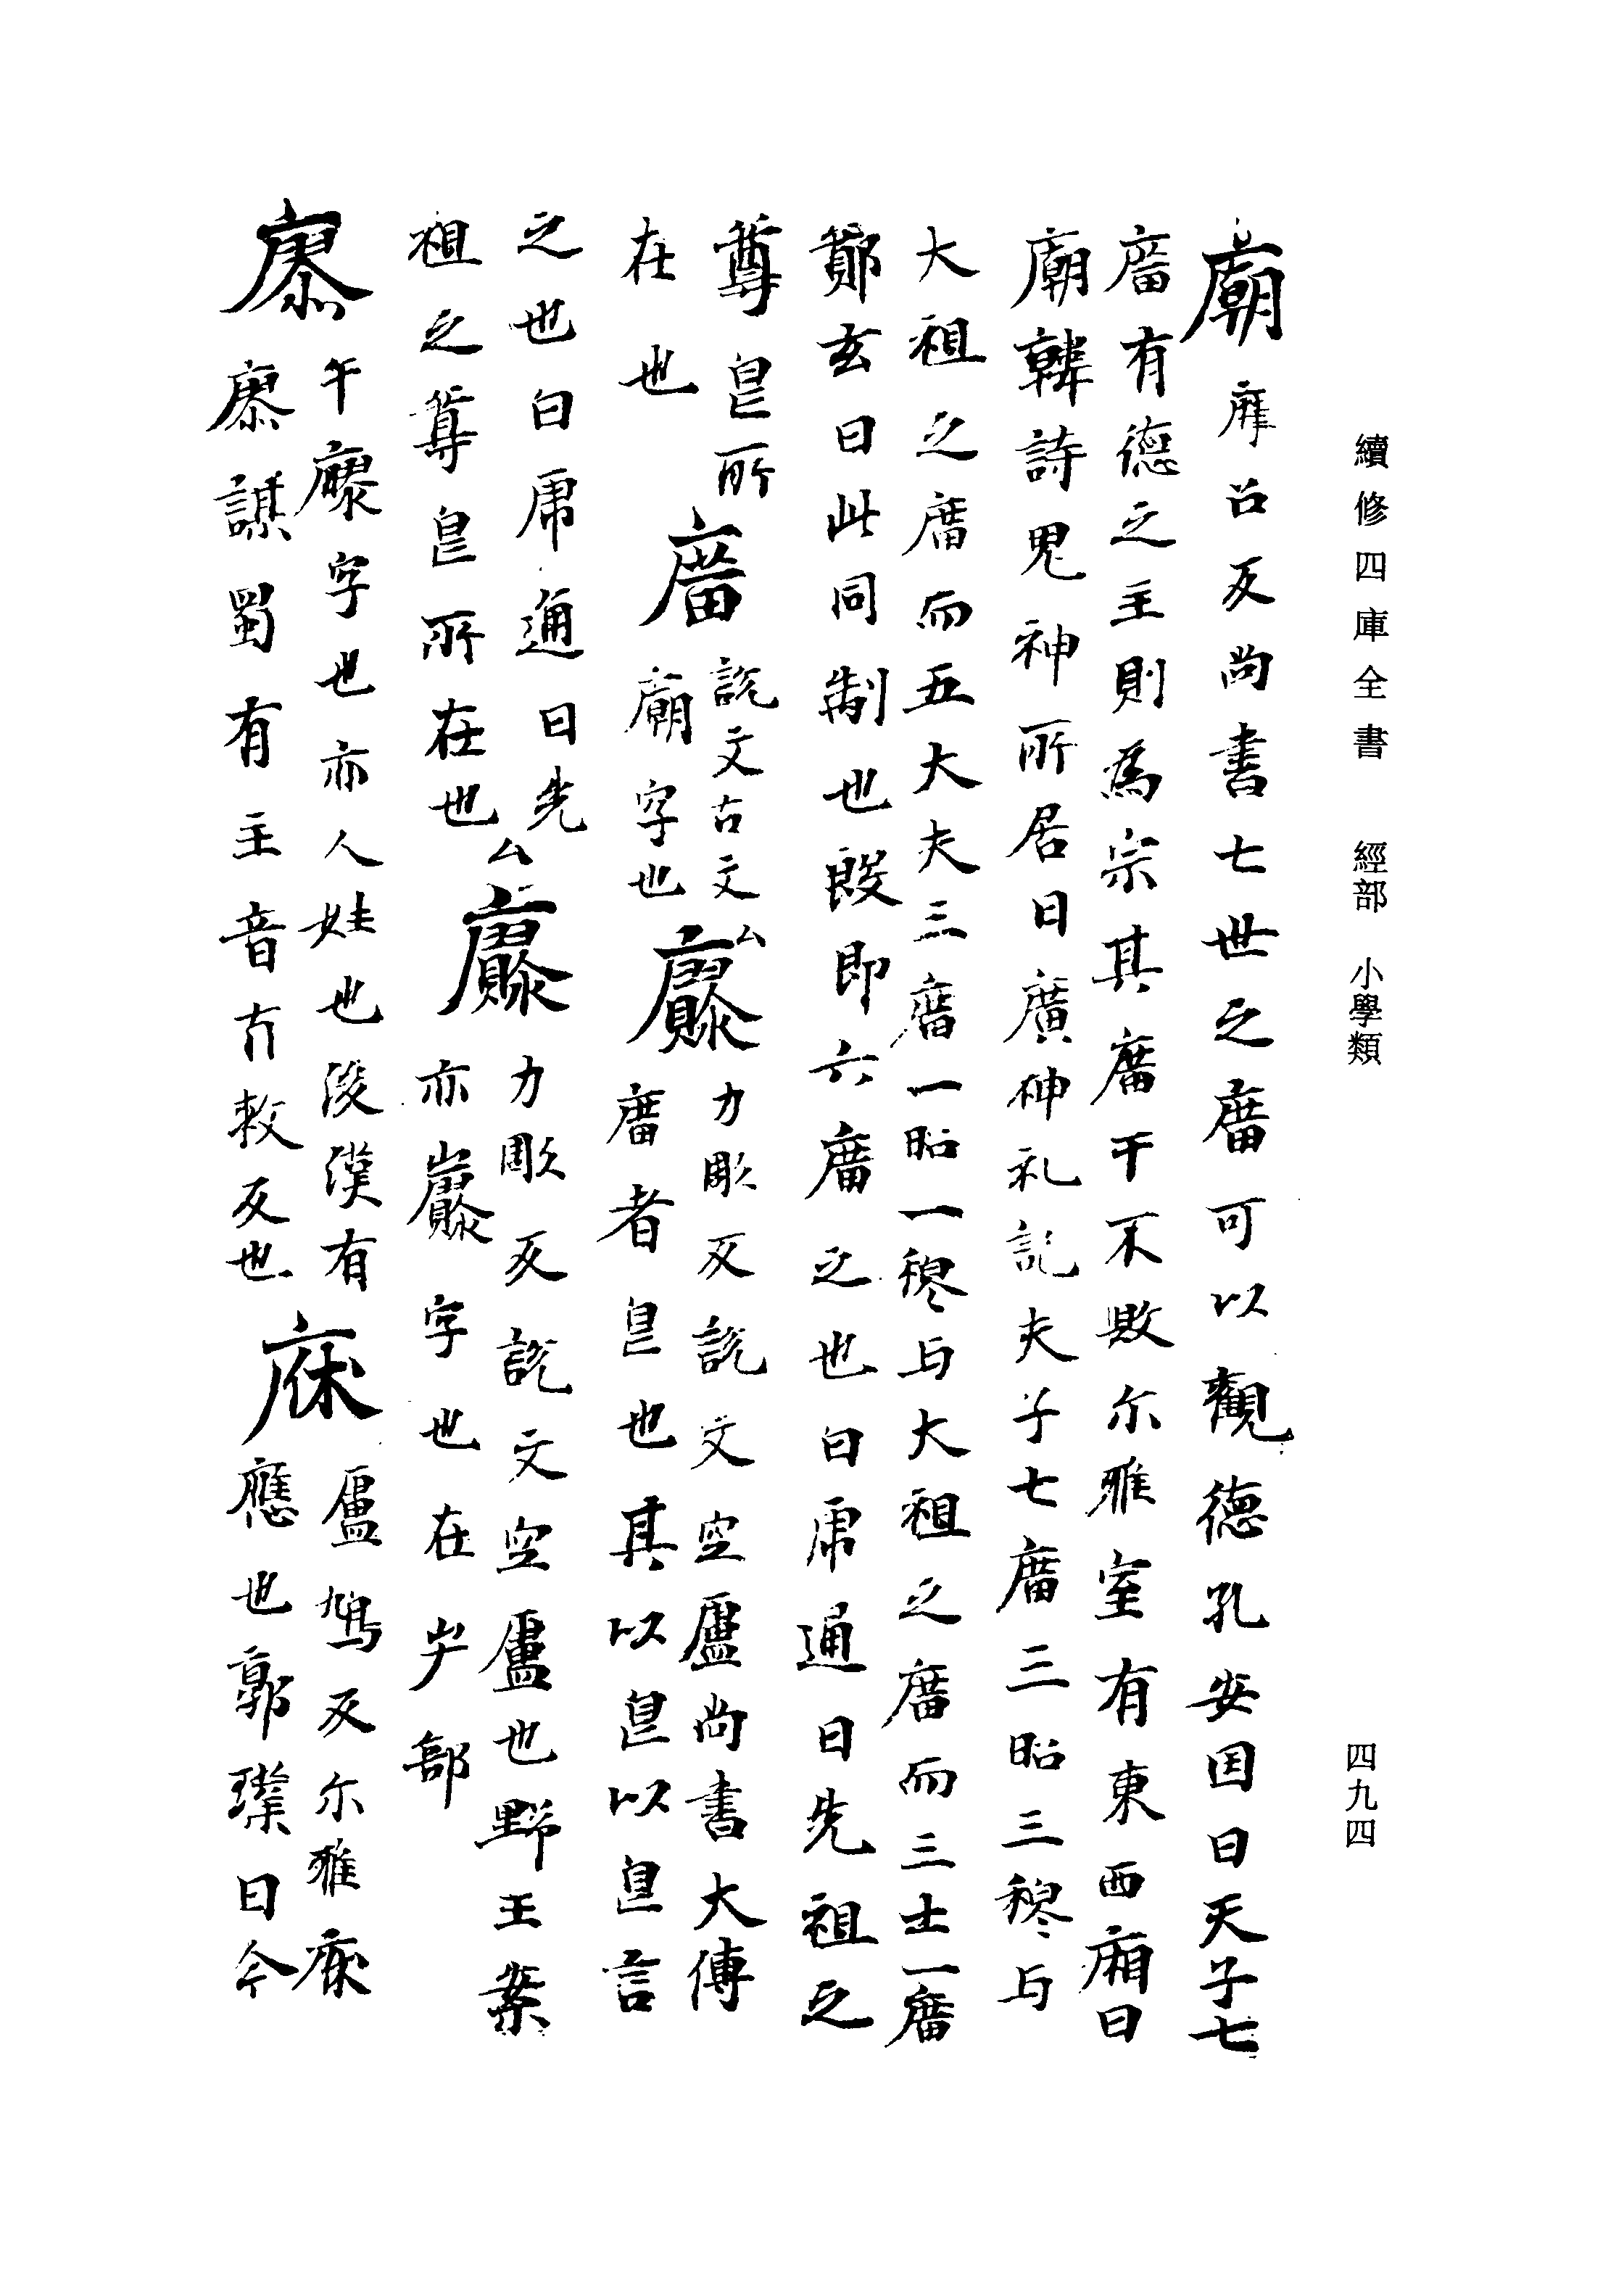 續修四庫全書　經部　小學類
四九四
廟靡召反尚書七世之庿可以觀德孔安囯曰天子七
庿有德之主則為宗其庿干不毀尓雅室有東西廂曰
廟韓詩鬼神所居曰廣神礼記夫子七庿三昭三穆与
大祖之庿而五大夫三庿一昭一穆与大祖之庿而三士一庿
鄭玄曰此同制也殷即六庿之也白虎通曰先祖之
尊皃所
在也
庿
說文古文
廟字也
廫
力彫反說文空廬尚書大傳
庿者皃也其以皃以皃言
之也白虎通曰先
祖之尊皃所在也
廫
力彫反說文空廬也野王案
亦字也在屵部
午字也亦人姓也後漢有
謀蜀有主音有救反也
庥
廬鳩反尓雅庥
應也郭璞曰今